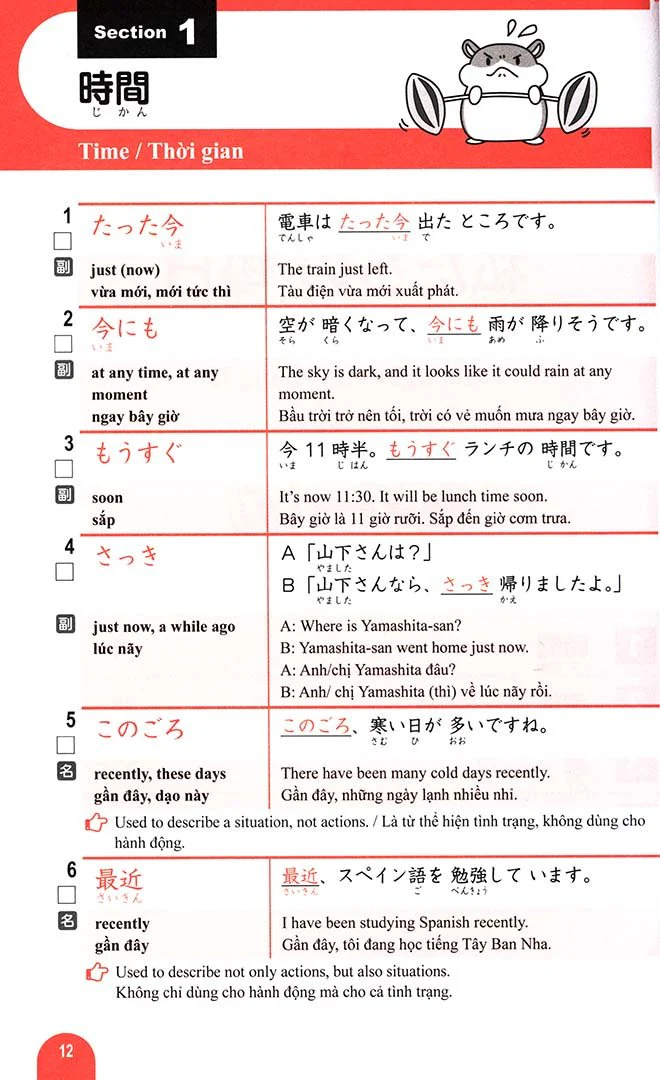 Section 1
時間
じかん
Time / Thời gian
1
たった今
いま
電車は たった今 出た ところです。
でんしゃ いま で
副
just (now)
vừa mới, mới tức thì
The train just left.
Tàu điện vừa mới xuất phát.
2
今にも
いま
空が 暗くなって、今にも 雨が 降りそうです。
そら くら いま あめ ふ
副
at any time, at any
moment
ngay bây giờ
The sky is dark, and it looks like it could rain at any
moment.
Bầu trời trở nên tối, trời có vẻ muốn mưa ngay bây giờ.
3
もうすぐ
今 11 時半。もうすぐ ランチの 時間です。
いま じ はん じ かん
副
soon
sắp
It's now 11:30. It will be lunch time soon.
Bây giờ là 11 giờ rưỡi. Sắp đến giờ cơm trưa.
4
さっき
A「山下さんは？」
やました
B「山下さんなら、さっき 帰りましたよ。」
やました かえ
副
just now, a while ago
lúc nãy
A: Where is Yamashita-san?
B: Yamashita-san went home just now.
A: Anh/chị Yamashita đâu?
B: Anh/ chị Yamashita (thì) về lúc nãy rồi.
5
このごろ
このごろ、寒い 日が 多いですね。
さむ ひ おお
名
recently, these days
gần đây, dạo này
There have been many cold days recently.
Gần đây, những ngày lạnh nhiều nhỉ.
Used to describe a situation, not actions. / Là từ thể hiện tình trạng, không dùng cho
hành động.
6
最近
さいきん
最近、スペイン語を 勉強して います。
さいきん ご べんきょう
名
recently
gần đây
I have been studying Spanish recently.
Gần đây, tôi đang học tiếng Tây Ban Nha.
Used to describe not only actions, but also situations.
Không chỉ dùng cho hành động mà cho cả tình trạng.
12